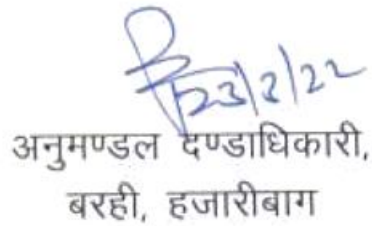 23/2/22
अनुमण्डल दण्डाधिकारी,
बरही, हजारीबाग